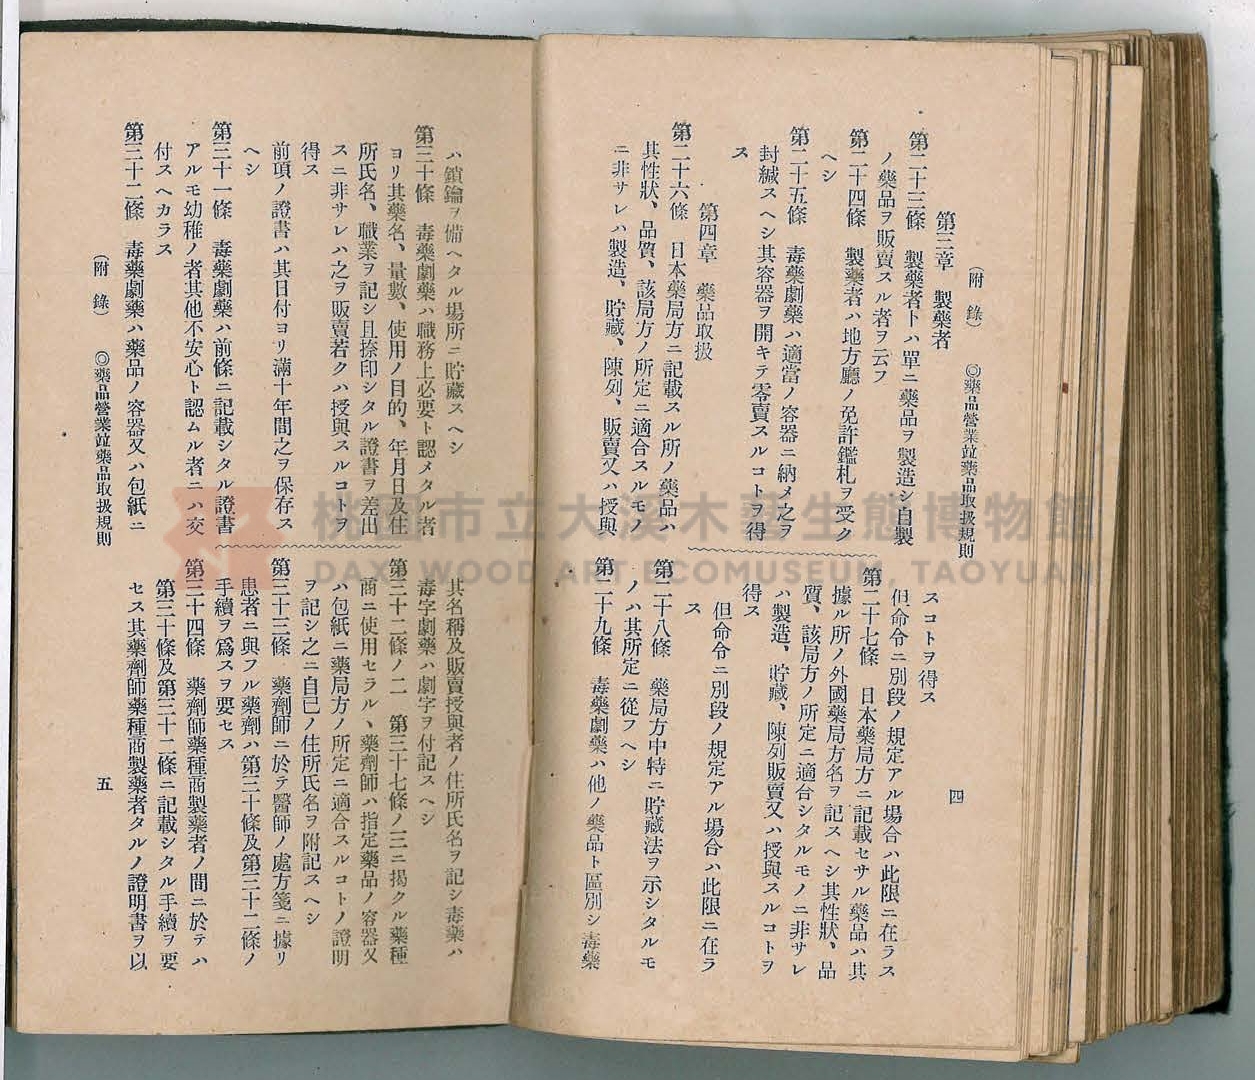 (附錄) ◎藥品營業竝藥品取扱規則
四
第三章 製藥者
第二十三條 製藥者トハ單ニ藥品ヲ製造シ自製
ノ藥品ヲ販賣スル者ヲ云フ
第二十四條 製藥者ハ地方廳ノ免許鑑札ヲ受ク
ヘシ
第二十五條 毒藥劇藥ハ適當ノ容器ニ納メ之ヲ
封緘スヘシ其容器ヲ開キテ零賣スルコトヲ得
ス
第四章 藥品取扱
第二十六條 日本藥局方ニ記載スル所ノ藥品ハ
其性狀、品質、該局方ノ所定ニ適合スルモノ
ニ非サレハ製造、貯藏、陳列、販賣又ハ授與
スコトヲ得ス
但命令ニ別段ノ規定アル場合ハ此限ニ在ラス
第二十七條 日本藥局方ニ記載セサル藥品ハ其
據ル所ノ外國藥局方名ヲ記スヘシ其性狀、品
質、該局方ノ所定ニ適合シタルモノニ非サレ
ハ製造、貯藏、陳列販賣又ハ授與スルコトヲ
得ス
但命令ニ別段ノ規定アル場合ハ此限ニ在ラ
ス
第二十八條 藥局方中特ニ貯藏法ヲ示シタルモ
ノハ其所定ニ從フヘシ
第二十九條 毒藥劇藥ハ他ノ藥品ト區別シ毒藥
ハ鎖鑰ヲ備ヘタル場所ニ貯藏スヘシ
第三十條 毒藥劇藥ハ職務上必要ト認メタル者
ヨリ其藥名、量數、使用ノ目的、年月日及住
所氏名、職業ヲ記シ且捺印シタル證書ヲ差出
スニ非サレハ之ヲ販賣若クハ授與スルコトヲ
得ス
前項ノ證書ハ其日付ヨリ滿十年間之ヲ保存ス
ヘシ
第三十一條 毒藥劇藥ハ前條ニ記載シタル證書
アルモ幼稚ノ者其他不安心ト認ムル者ニハ交
付スヘカラス
第三十二條 毒藥劇藥ハ藥品ノ容器又ハ包紙ニ
其名稱及販賣授與者ノ住所氏名ヲ記シ毒藥ハ
毒字劇藥ハ劇字ヲ付記スヘシ
第三十二條ノ二 第三十七條ノ三ニ揭クル藥種
商ニ使用セラルヽ藥劑師ハ指定藥品ノ容器又
ハ包紙ニ藥局方ノ所定ニ適合スルコトノ證明
ヲ記シ之ニ自己ノ住所氏名ヲ附記スヘシ
第三十三條 藥劑師ニ於テ醫師ノ處方箋ニ據リ
患者ニ與フル藥劑ハ第三十條及第三十二條ノ
手續ヲ爲スヲ要セス
第三十四條 藥劑師藥種商製藥者ノ間ニ於テハ
第三十條及第三十二條ニ記載シタル手續ヲ要
セス其藥劑師藥種商製藥者タルノ證明書ヲ以
(附錄) ◎藥品營業竝藥品取扱規則
五
桃園市立大溪木藝生態博物館
DAXI WOOD ART ECOMUSEUM, TAOYUAN